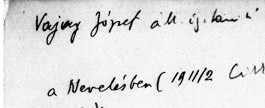 Vajay József áll. ig. tanító
a Nevelésben (1911/2